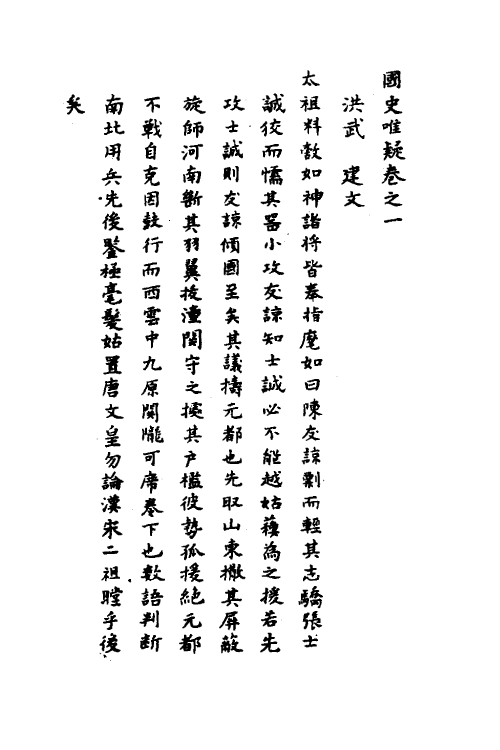 國史唯疑卷之一
洪武　建文
太祖料敵如神諸將皆奉指麾如曰陳友諒剽而輕其志驕張士
誠狡而懦其器小攻友諒知士誠必不能越姑蘇為之援若先
攻士誠則友諒傾國至矣其議擣元都也先取山東撤其屏蔽
旋師河南斷其羽翼拔潼關守之據其户檻彼勢孤援絕元都
不戰自克因鼓行而西雲中九原関隴可席卷下也數語判斷
南北用兵先後鑒極毫髮姑置唐文皇勿論漢宋二祖瞠乎後
矣